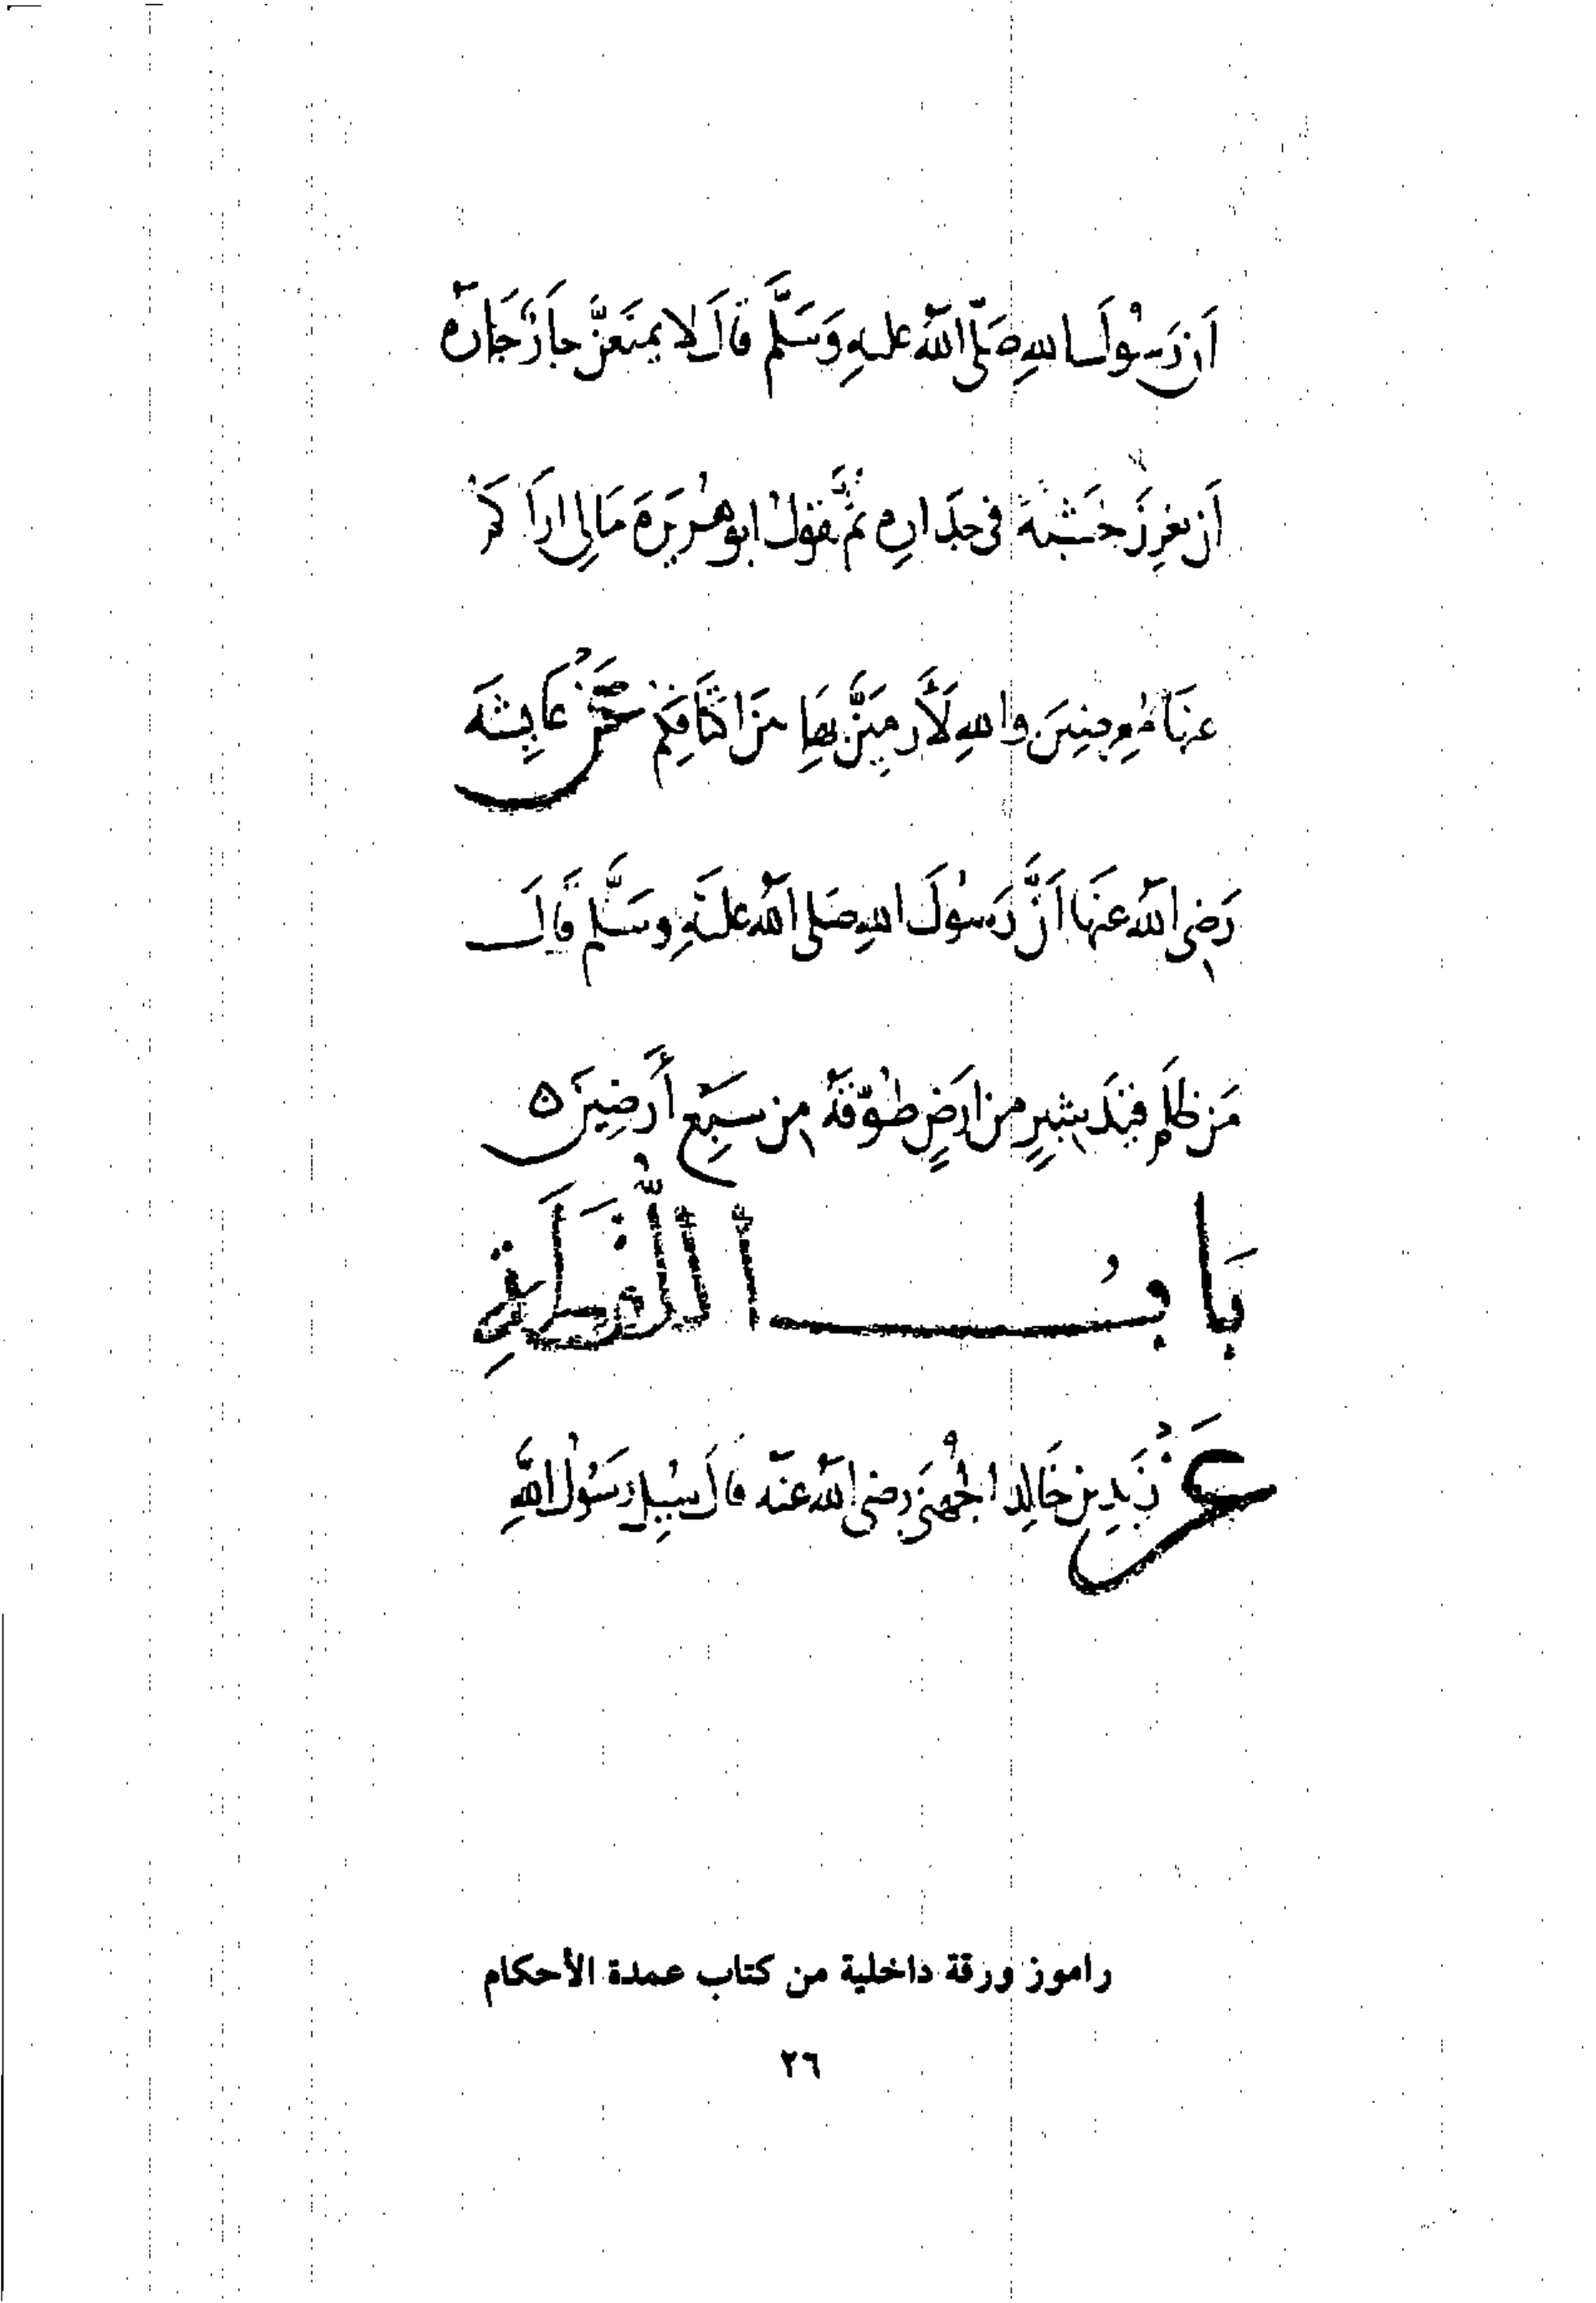 أن رسول الله صَلّى الله عليهِ وَسَلَّم قال لا يمنَعَنَّ جَارٌ جَارَهُ
أن يغرِزَ خَشَبَةً في جِدَارِهِ ثمَّ يقولُ ابو هُرَيرَةَ مَا لِي اراكُمْ
عنهَا مُعرِضِينَ واللهِ لَأَرمِيَنَّ بهَا بَينَ اكتَافِكُم عَنْ عَايِشَةَ
رَضِي اللهُ عنهَا أَنَّ رَسُولَ اللهِ صَلى اللهُ عليهِ وسَلَّم قَالَ
مَن ظلمَ قيدَ شِبْرٍ من ارَضٍ طُوّقَهُ مِن سَبْعِ أَرَضِينَ ٥
بَابُ اللُّقَطَةِ
عَنْ زَيدِ بنِ خَالِدٍ الجُهَنِيّ رضي اللهُ عنهُ قَالَ سُيِلَ رَسُولُ اللَّهِ
راموز ورقة داخلية من كتاب عمدة الأحكام
٢٦